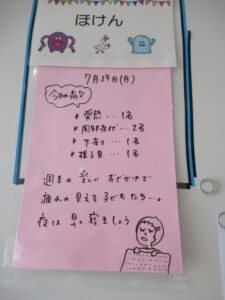 ほけん
7月29日(月)
今日の病欠
発熱…1名
胃腸症状…2名
下痢り…1名
様子見…1名
週末の楽しいおでかけで
疲れの見える子どもたち…。
夜は早く寝ましょう